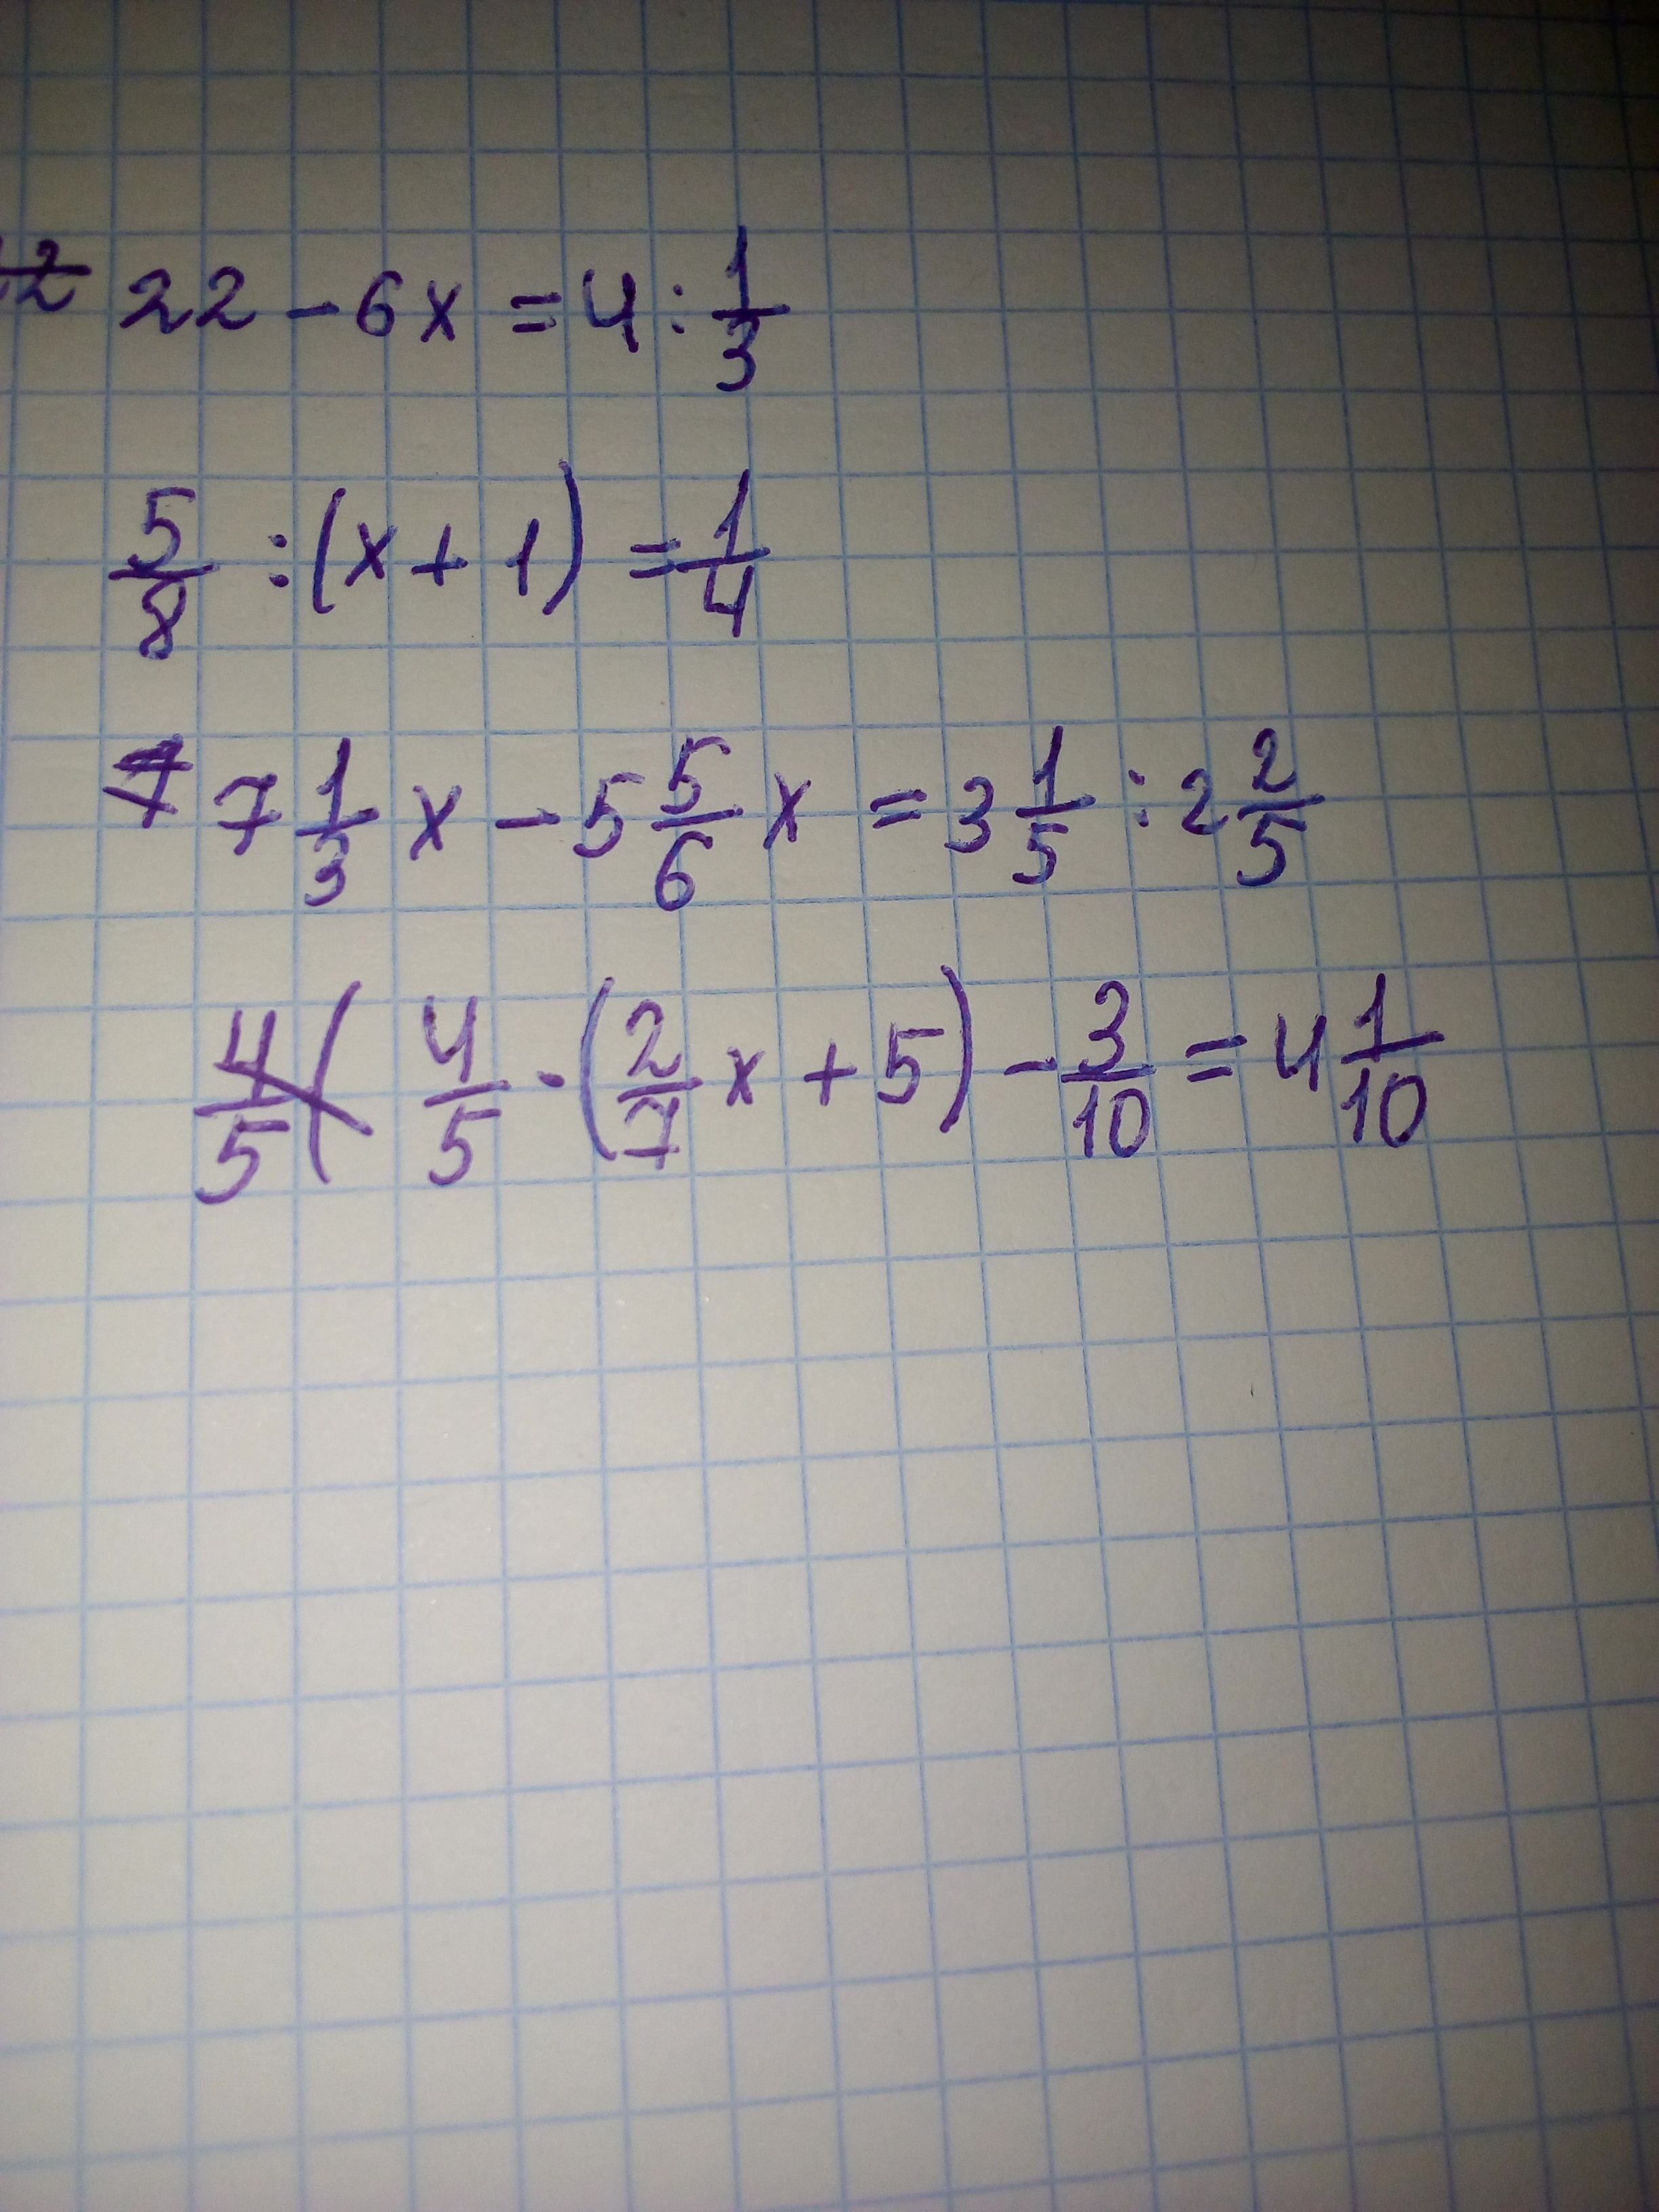 22 - 6x = 4 : 1/3
5/8 : (x + 1) = 1/4
7 1/3 x - 5 5/6 x = 3 1/5 : 2 2/5
4/5 · (2/7 x + 5) - 3/10 = 4 1/10